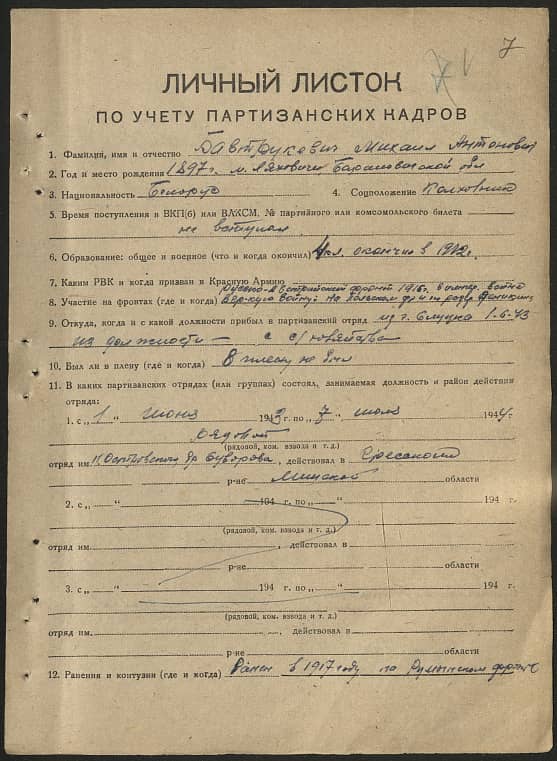 7
ЛИЧНЫЙ ЛИСТОК
ПО УЧЕТУ ПАРТИЗАНСКИХ КАДРОВ
1. Фамилия, имя и отчество Бавтрукевич Михаил Антонович
2. Год и место рождения 1897 г. м. Ляховичи Барановичской обл
3. Национальность Белорус 4. Соцположение Колхозник
5. Время поступления в ВКП(б) или ВЛКСМ, № партийного или комсомольского билета
не вступал
6. Образование: общее и военное (что и когда окончил) 4 кл. окончил в 1912 г.
7. Каким РВК и когда призван в Красную Армию Русско-Австрийский фронт 1916 г. в импер. войну
8. Участие на фронтах (где и когда) войну: на Польском
9. Откуда, когда и с какой должности прибыл в партизанский отряд из г. Слуцка 1-6-43
из должности — с с/хозяйства
10. Был ли в плену (где и когда) В плену не был
11. В каких партизанских отрядах (или группах) состоял, занимаемая должность и район действия
отряда:
1. с „ 1 “ июня 1943 г. по „ 7 “ июля 1944 г.
рядовой
(рядовой, ком. взвода и т. д.)
отряд им. Н. Островского, бр Суворова, действовал в
р-не Минской области
2. с „ “ 194 г. по „ “ 194 г.
(рядовой, ком. взвода и т. д.)
отряд им. , действовал в
р-не области
3. с „ “ 194 г. по „ “ 194 г.
(рядовой, ком. взвода и т. д.)
отряд им. , действовал в
р-не области
12. Ранения и контузии (где и когда) Ранен в 1917 году на Румынском фронте